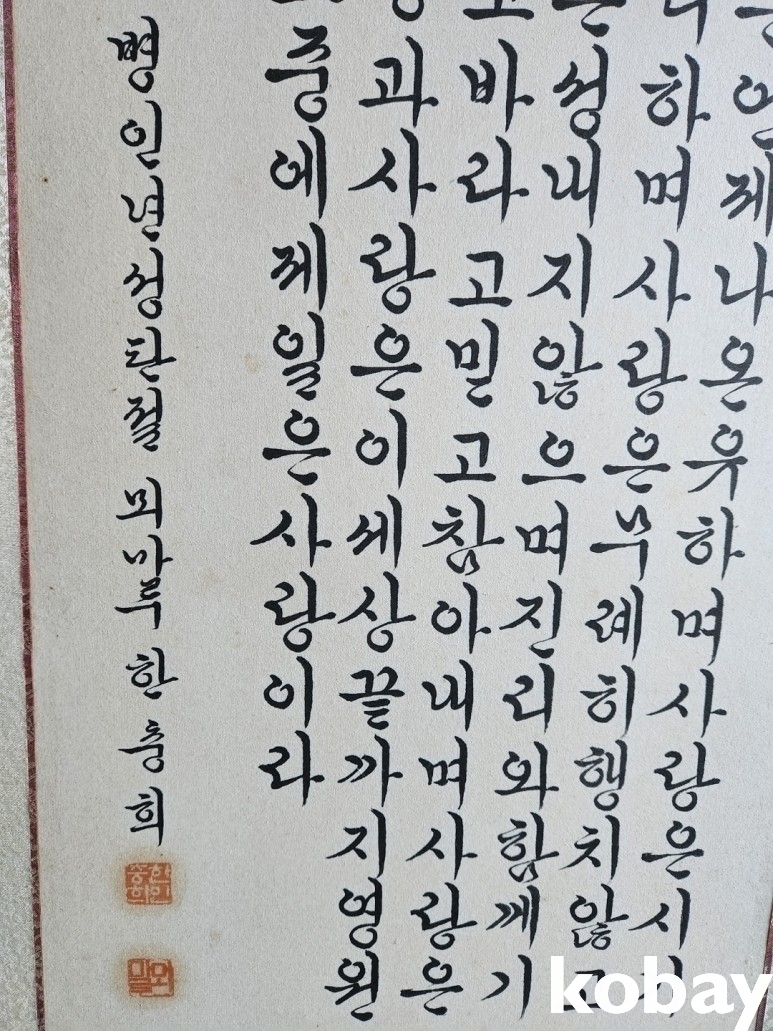 은언제나온유하며사랑은시기
하며사랑은무례히행치않고
은성내지않으며진리와함께기
고바라고믿고참아내며사랑은
과사랑은이세상끝까지영원
중에제일은사랑이라
병인년성탄절 뫼마루 한충희
한인충희
kobay